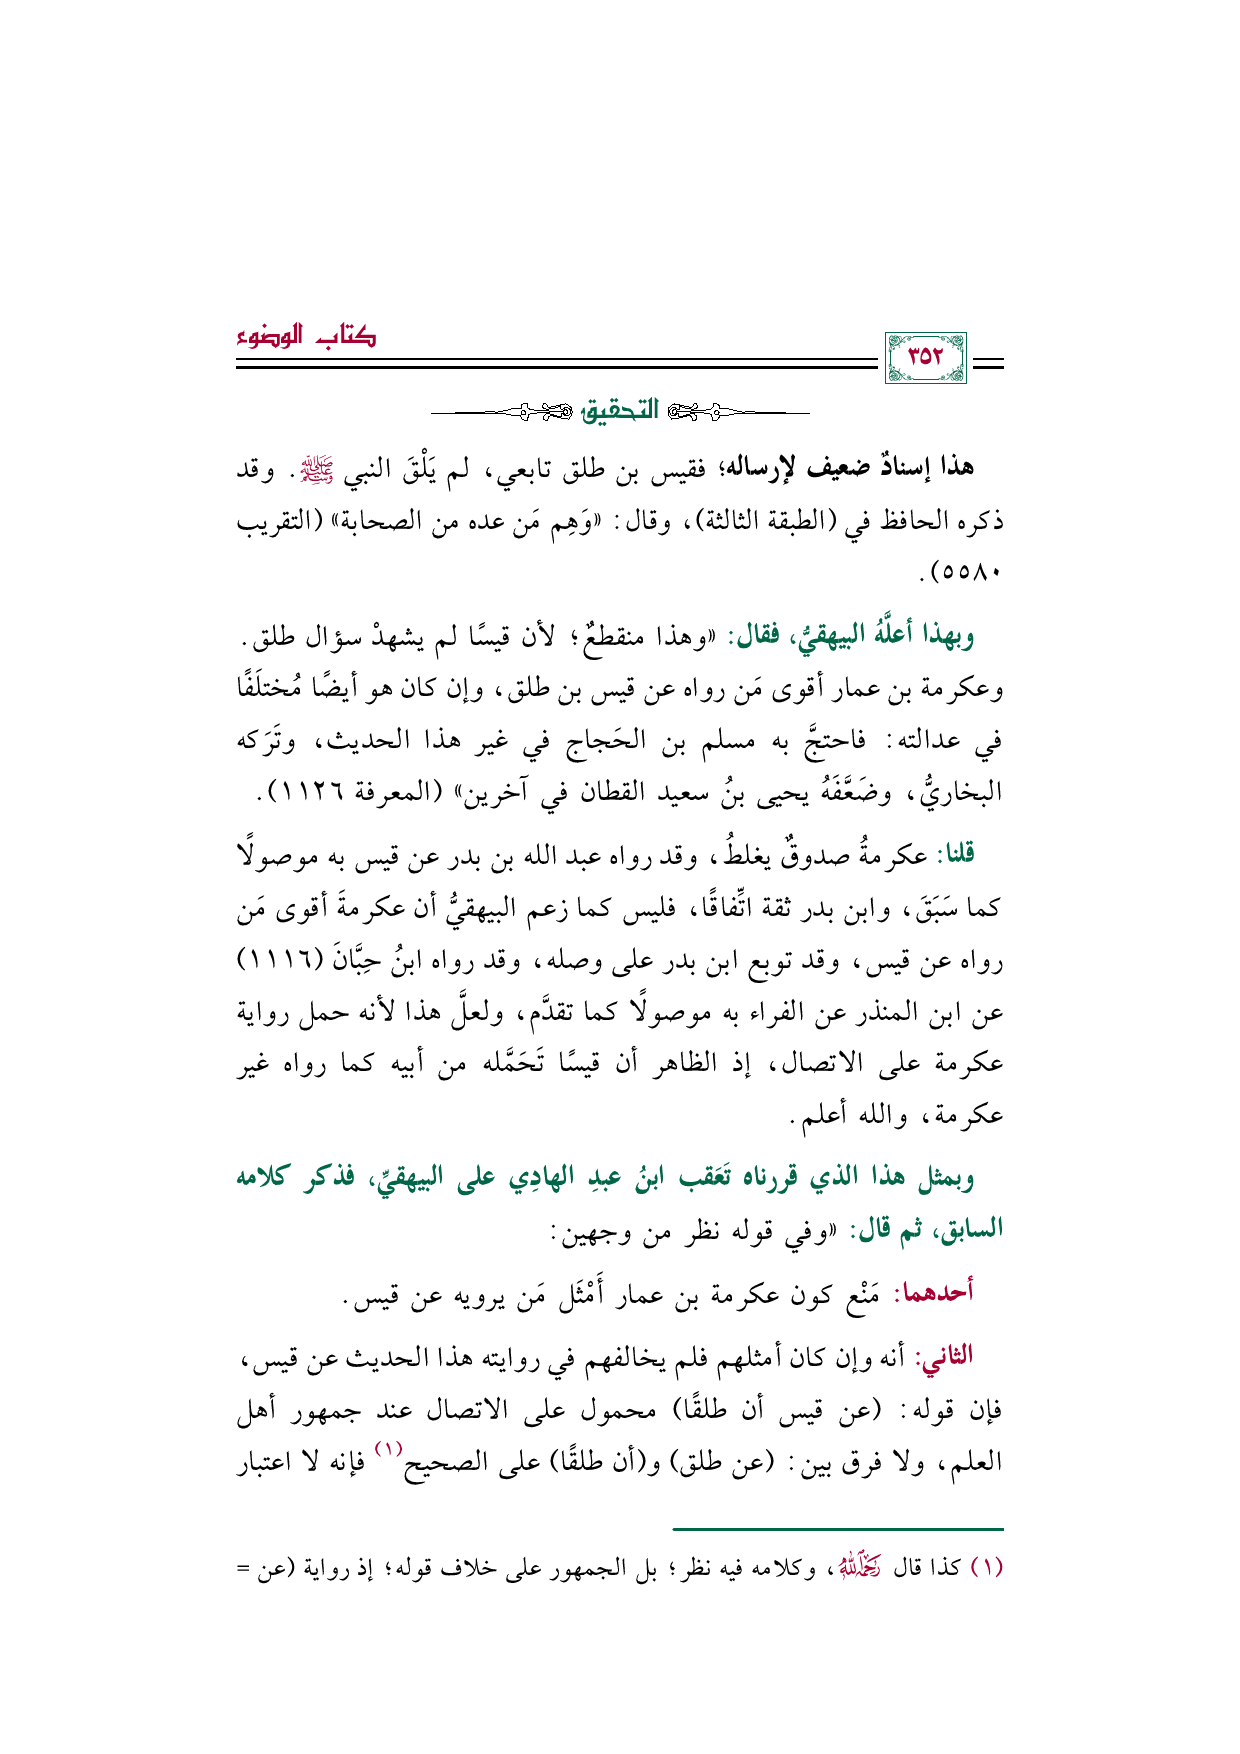 كتاب الوضوء
٣٥٢
التحقيق
هذا إسنادٌ ضعيف لإرساله؛ فقيس بن طلق تابعي، لم يَلْقَ النبي ﷺ. وقد
ذكره الحافظ في (الطبقة الثالثة)، وقال: «وَهِم مَن عده من الصحابة» (التقريب
٥٥٨٠).
وبهذا أعلَّهُ البيهقيُّ، فقال: «وهذا منقطعٌ؛ لأن قيسًا لم يشهدْ سؤال طلق.
وعكرمة بن عمار أقوى مَن رواه عن قيس بن طلق، وإن كان هو أيضًا مُختلَفًا
في عدالته: فاحتجَّ به مسلم بن الحَجاج في غير هذا الحديث، وتَرَكه
البخاريُّ، وضَعَّفَهُ يحيى بنُ سعيد القطان في آخرين» (المعرفة ١١٢٦).
قلنا: عكرمةُ صدوقٌ يغلطُ، وقد رواه عبد الله بن بدر عن قيس به موصولًا
كما سَبَقَ، وابن بدر ثقة اتِّفاقًا، فليس كما زعم البيهقيُّ أن عكرمةَ أقوى مَن
رواه عن قيس، وقد توبع ابن بدر على وصله، وقد رواه ابنُ حِبَّانَ (١١١٦)
عن ابن المنذر عن الفراء به موصولًا كما تقدَّم، ولعلَّ هذا لأنه حمل رواية
عكرمة على الاتصال، إذ الظاهر أن قيسًا تَحَمَّله من أبيه كما رواه غير
عكرمة، والله أعلم.
وبمثل هذا الذي قررناه تَعَقب ابنُ عبدِ الهادِي على البيهقيِّ، فذكر كلامه
السابق، ثم قال: «وفي قوله نظر من وجهين:
أحدهما: مَنْع كون عكرمة بن عمار أَمْثَل مَن يرويه عن قيس.
الثاني: أنه وإن كان أمثلهم فلم يخالفهم في روايته هذا الحديث عن قيس،
فإن قوله: (عن قيس أن طلقًا) محمول على الاتصال عند جمهور أهل
العلم، ولا فرق بين: (عن طلق) و(أن طلقًا) على الصحيح(١) فإنه لا اعتبار
(١) كذا قال رَحِمَهُ اللَّهُ، وكلامه فيه نظر؛ بل الجمهور على خلاف قوله؛ إذ رواية (عن =